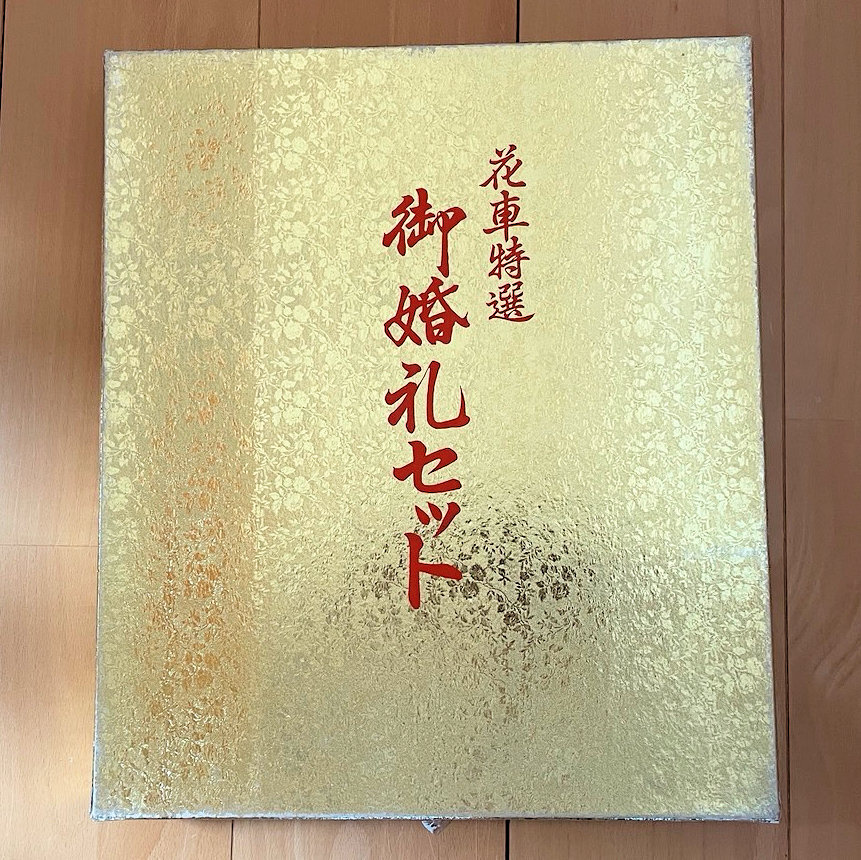 花車特選
御婚礼セット